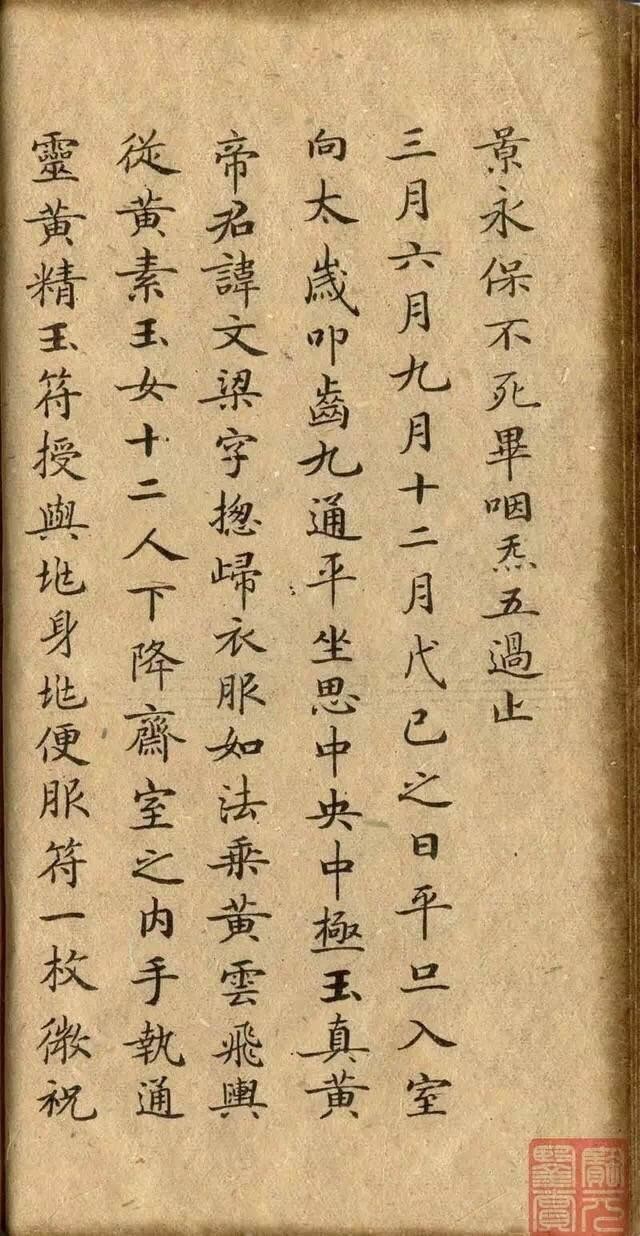 景永保不死畢咽炁五過止
三月六月九月十二月戊己之日平旦入室
向太歲叩齒九通平坐思中央中極玉真黄
帝君諱文梁字揔歸衣服如法乗黄雲飛輿
從黄素玉女十二人下降齋室之内手執通
靈黄精玉符授與兆身兆便服符一枚微祝